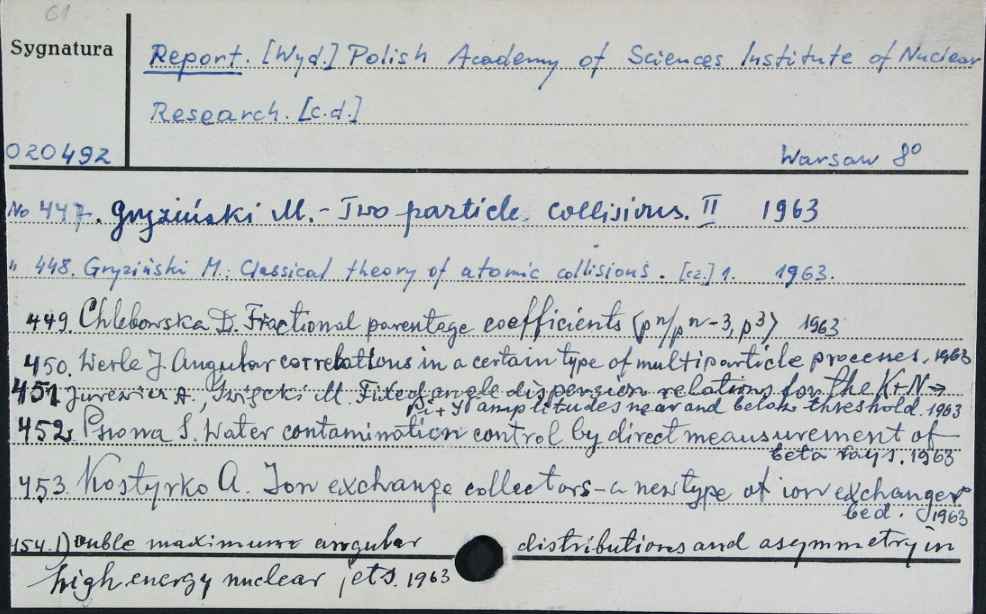 61
Sygnatura
Report. [Wyd.] Polish Academy of Sciences Institute of Nuclear
Research. [c.d.]
020492
Warsaw 8º
No 447. Gryziński M. - Two particle collisions. II 1963
" 448. Gryziński M.: Classical theory of atomic collisions. [cz.] 1. 1963.
449. Chlebowska D. Fractional parentage coefficients <pⁿ/pⁿ⁻³, p³> 1963
450. Werle J. Angular correlations in a certain type of multiparticle processes. 1963
451 Jurewicz A., Święcki M. Fixed angle dispersion relations for the K+N →
+ Y amplitudes near and below threshold. 1963
452. Psiona S. Water contamination control by direct meausurement of
beta rays. 1963
453. Kostyrko A. Ion exchange collectors – a new type of ion exchanger
bed. 1963
454. Double maximum angular distributions and asymmetry in
high energy nuclear jets. 1963